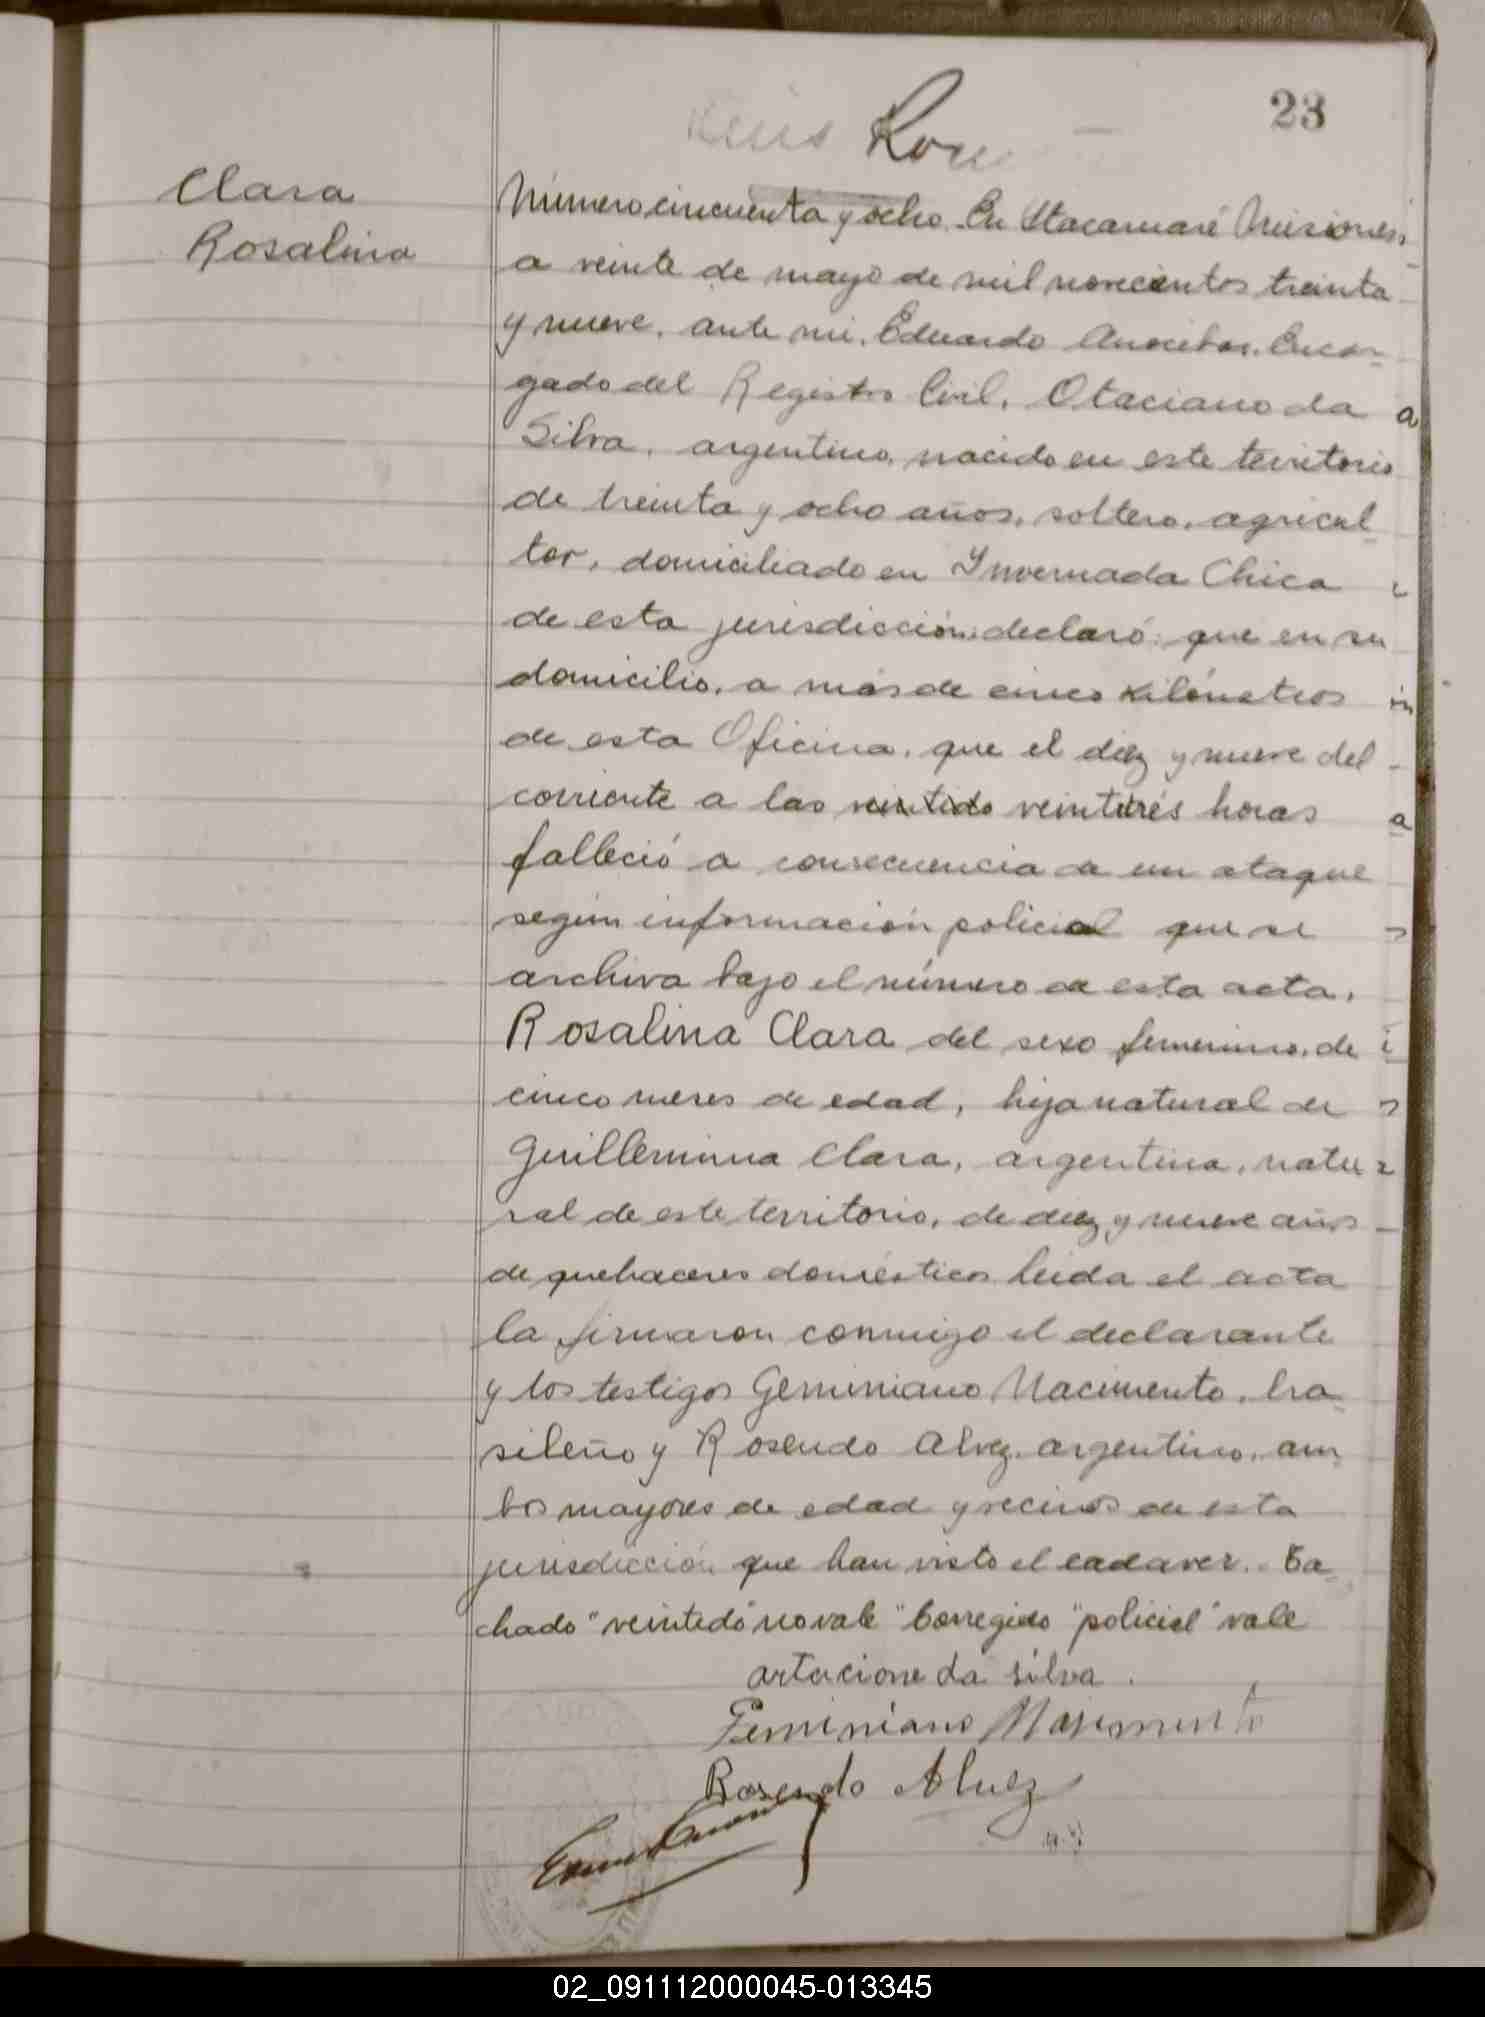 23
Clara
Rosalina
Número cincuenta y ocho. En Itacaruaré Misiones,
a veinte de mayo de mil novecientos treinta
y nueve, ante mi, Eduardo Encar-
gado del Registro Civil, Otaciano da
Silva, argentino, nacido en este territorio
de treinta y ocho años, soltero, agricul
tor, domiciliado en Ynvernada Chica
de esta jurisdicción declaró: que en su
domicilio, a más de cinco kilómetros
de esta Oficina, que el diez y nueve del
corriente a las veintido veintitrés horas
falleció a consecuencia de un ataque
según información policial que se
archiva bajo el número de esta acta,
Rosalina Clara del sexo femenino, de
cinco meses de edad, hija natural de
Guillermina Clara, argentina, natu
ral de este territorio, de diez y nueve años
de quehaceres domésticos leida el acta
la firmaron conmigo el declarante
y los testigos Geminiano Nacimento, bra-
sileño y Rosendo Alvez, argentino, am
bos mayores de edad y vecinos de esta
jurisdicción que han visto el cadaver. Ta-
chado "veintedo" no vale "Corregido "policial" vale
artacione da silva.
Geminiano Nasimento
Rosendo Alvez
02_091112000045-013345